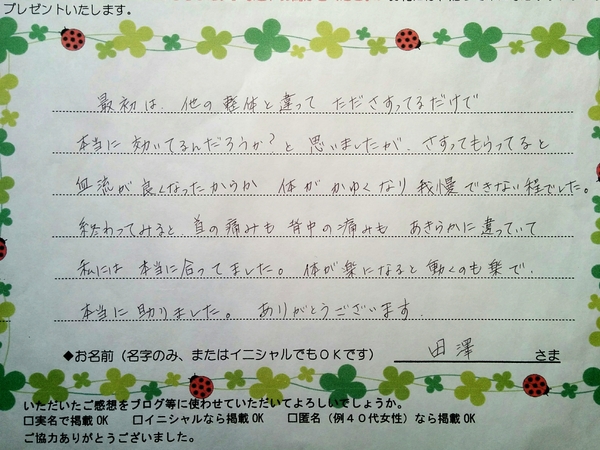 プレゼントいたします。
最初は、他の整体と違って たださすってるだけで
本当に 効いてるんだろうか?と 思いましたが、さすってもらってると
血流が良くなったからか 体がかゆくなり 我慢できない程でした。
終わってみると 首の痛みも 背中の痛みも あきらかに違っていて
私には 本当に合ってました。体が楽になると 働くのも楽で、
本当に助りました。 ありがとうございます。
◆お名前(名字のみ、またはイニシャルでもOKです) 田澤 さま
いただいたご感想をブログ等に使わせていただいてよろしいでしょうか。
□実名で掲載OK □イニシャルなら掲載OK □匿名(例40代女性)なら掲載OK
ご協力ありがとうございました。